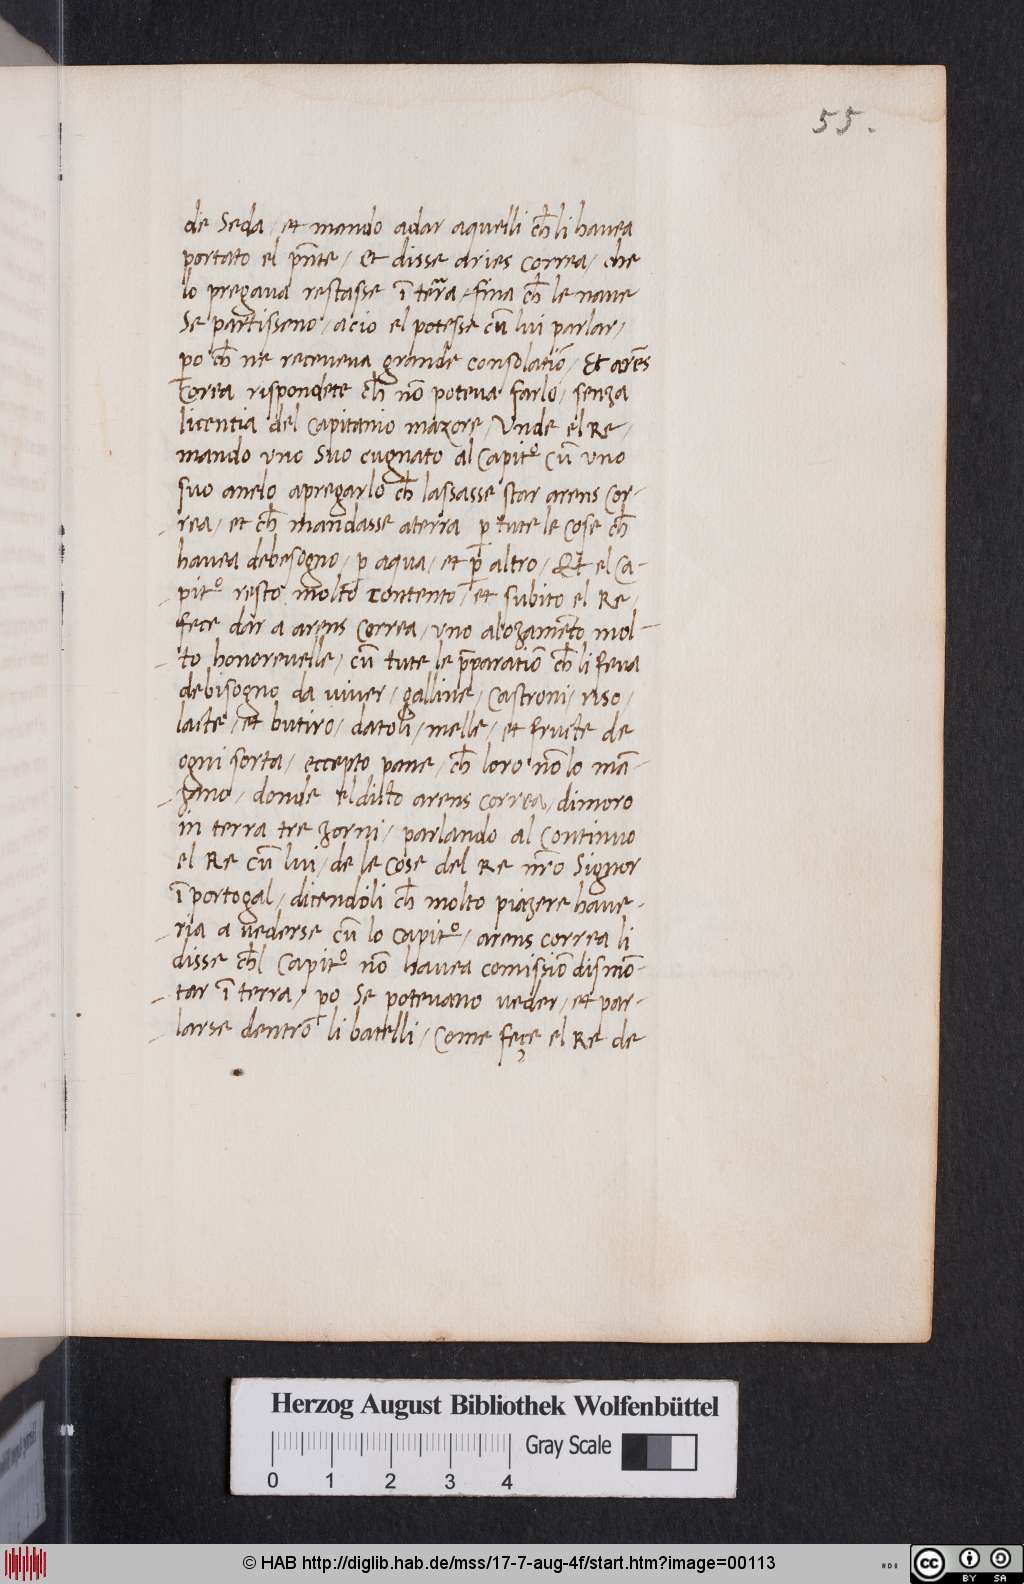 55.
de Seda / et mando adar aquelli ch̄ li havea
portato el pn̄te / Et disse aries correa / che
lo pregava restasse ī terra / fina ch̄ le nave
Se partisseno / acio el potesse cū lui parlar /
po ch̄ ne receveva grande consolatiō / Et arēs
Correa rispondete ch̄ nō poteva farlo / senza
licentia del capitanio mazore / Unde el Re /
mando uno Suo cugnato al capitº cū uno
suo anelo apregarlo ch̄ lassasse star arens cor-
rea / et ch̄ mandasse aterra p̄ tute le cose ch̄
havea debesogno / p̄ aqua / et p̄ altro / Et el ca-
pitº resto molto contento / et subito el Re /
fece dar a arens correa / uno alozamēto mol-
to honorevelle / cū tute le p̄paratiō ch̄ li feva
debisogno da viver / galline / castroni / riso /
lacte / et butiro / datoli / melle / et fructe de
ogni sorta / eccepto pane / ch̄ loro nō lo mā-
zano / donde el dicto arens correa / dimoro
in terra tre zorni / parlando al continuo
el Re cū lui / de le cose del Re nr̄o Signor
ī portogal / dicendoli ch̄ molto piazere have-
ria a vederse cū lo capitº / arens correa li
disse ch̄l capitº nō havea comissiō dismō-
tar ī terra / po se potevano veder / et par-
larse dentro li batelli / come feçe el Re de
Herzog August Bibliothek Wolfenbüttel
Gray Scale
0 1 2 3 4
© HAB http://diglib.hab.de/mss/17-7-aug-4f/start.htm?image=00113
cc BY SA